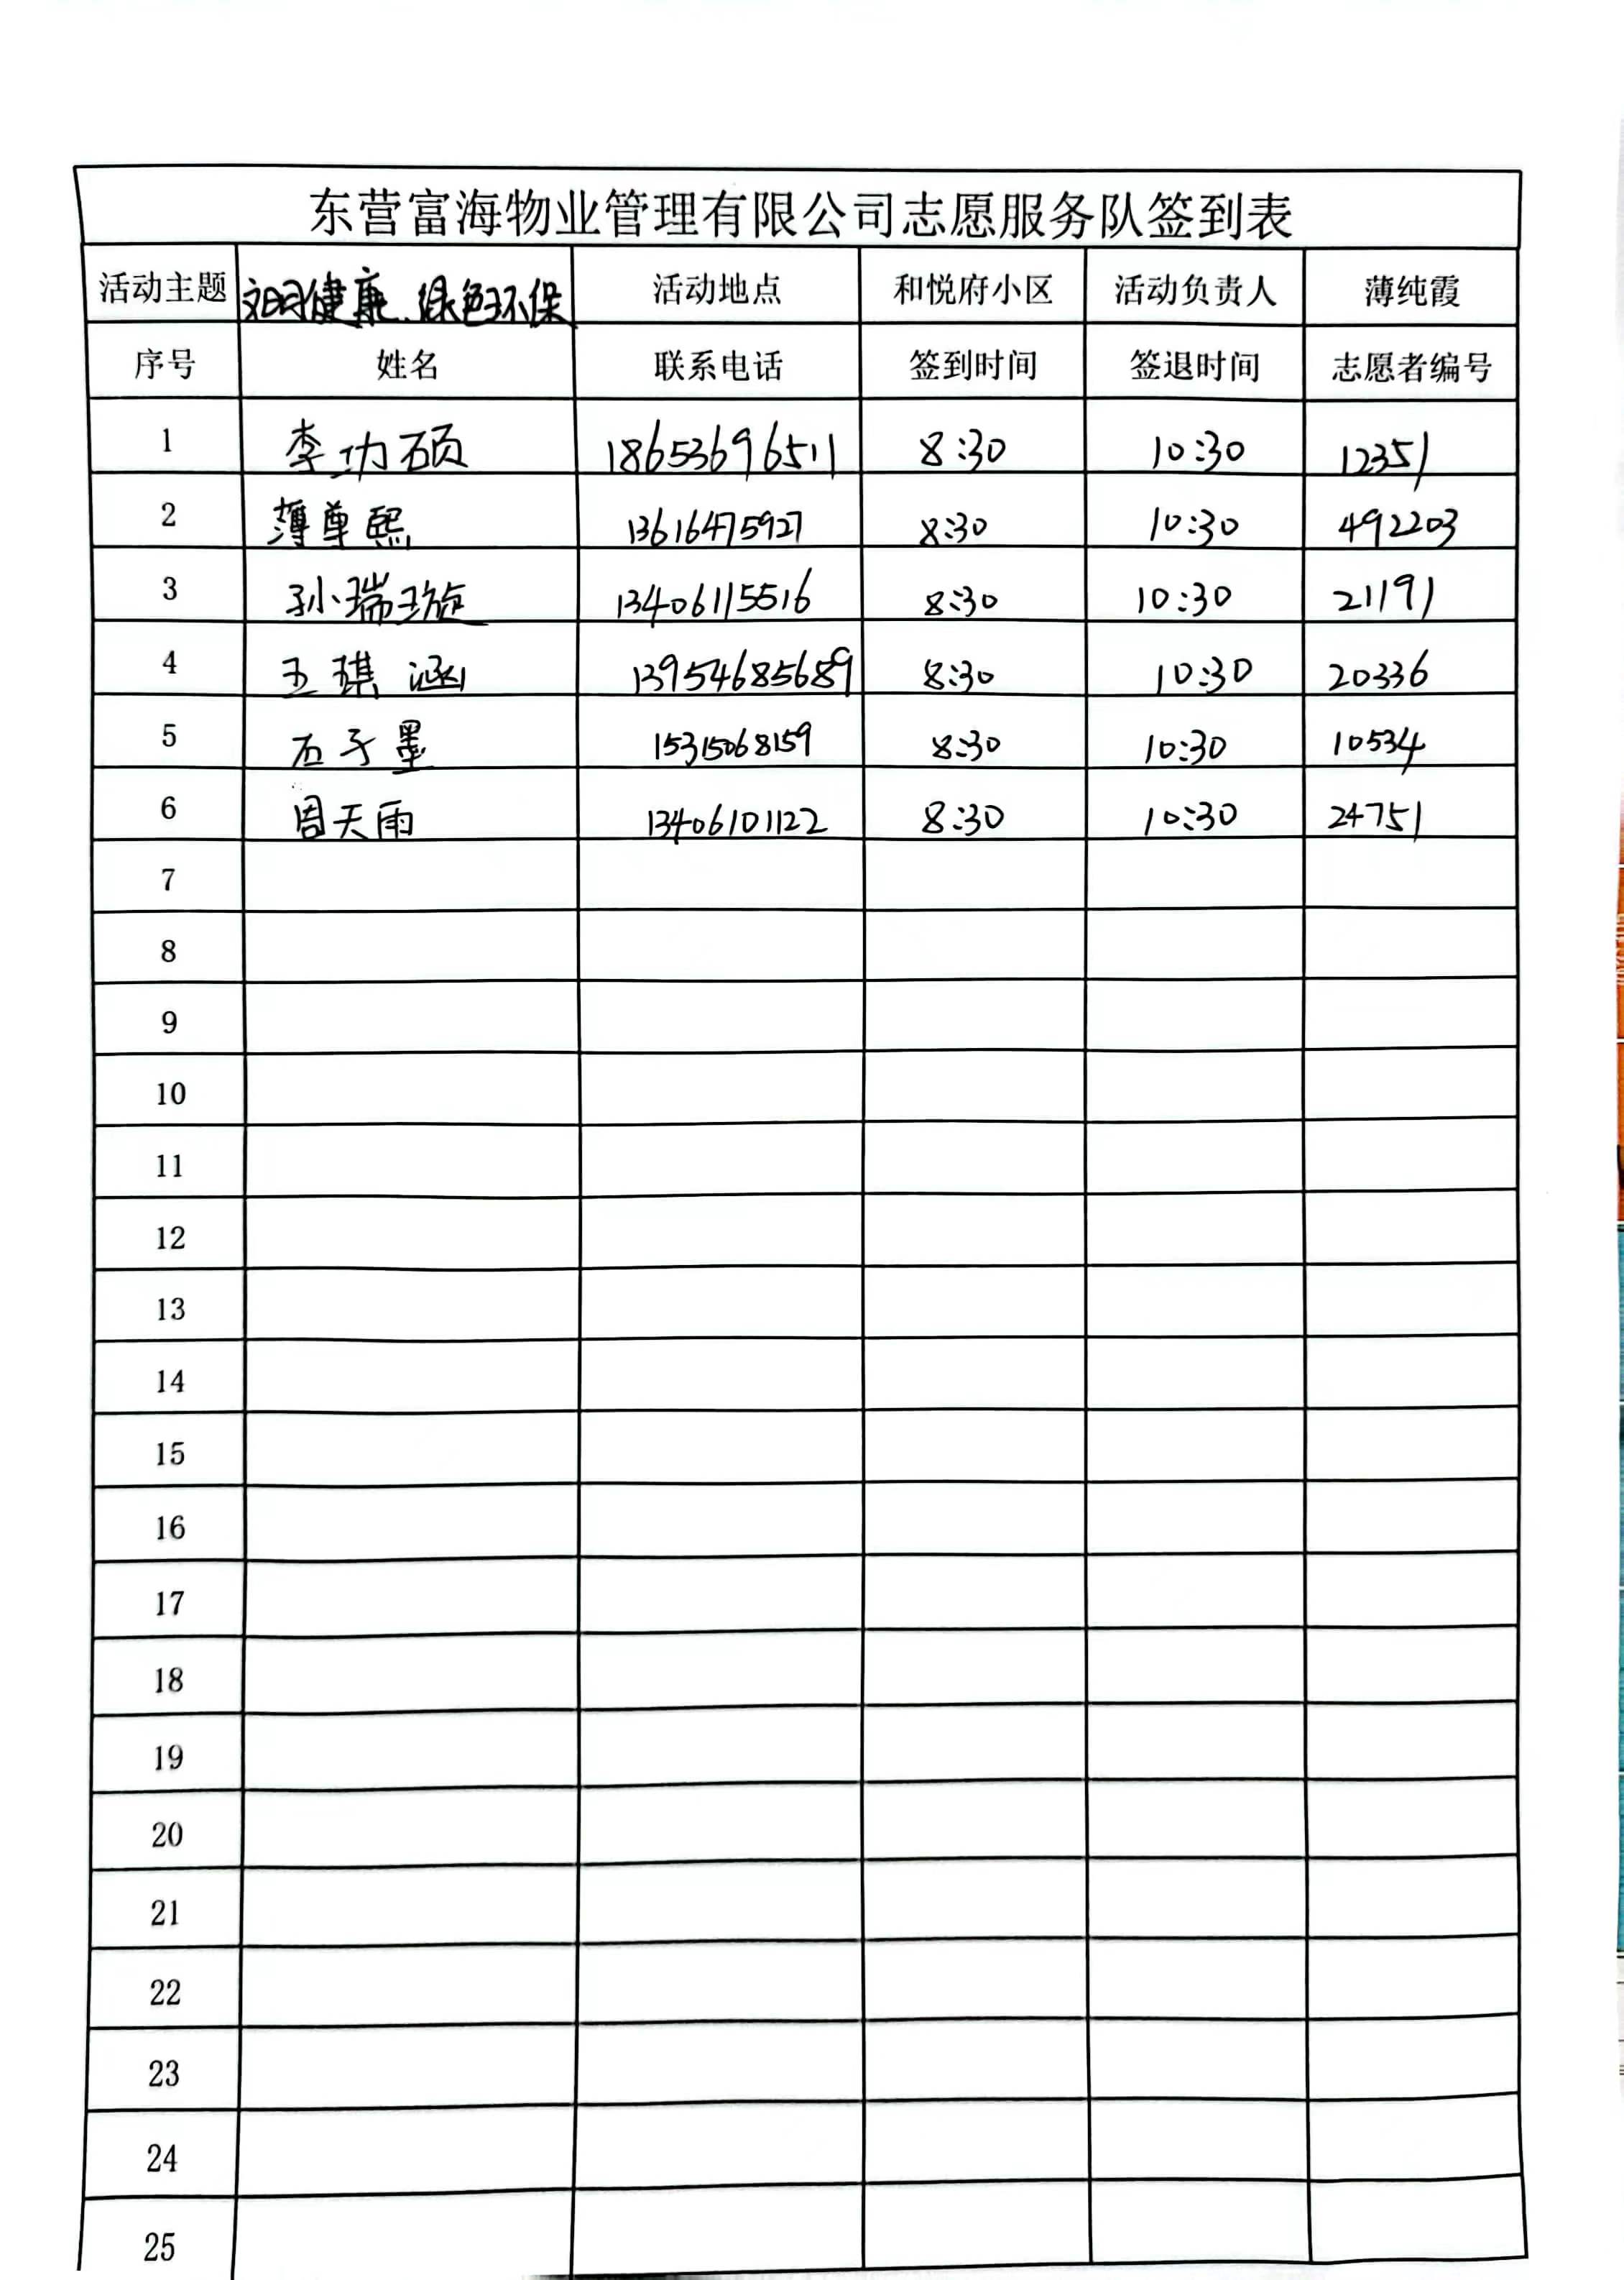 东营富海物业管理有限公司志愿服务队签到表
活动主题 文明健康、绿色环保 活动地点 和悦府小区 活动负责人 薄纯霞
序号 姓名 联系电话 签到时间 签退时间 志愿者编号
1 李功硕 18653696511 8:30 10:30 12351
2 薄尊熙 13616475927 8:30 10:30 492203
3 孙瑞璇 13406115516 8:30 10:30 21191
4 王琪涵 13954685689 8:30 10:30 20336
5 石子墨 15315068159 8:30 10:30 10534
6 周天雨 13406101122 8:30 10:30 24751
7
8
9
10
11
12
13
14
15
16
17
18
19
20
21
22
23
24
25